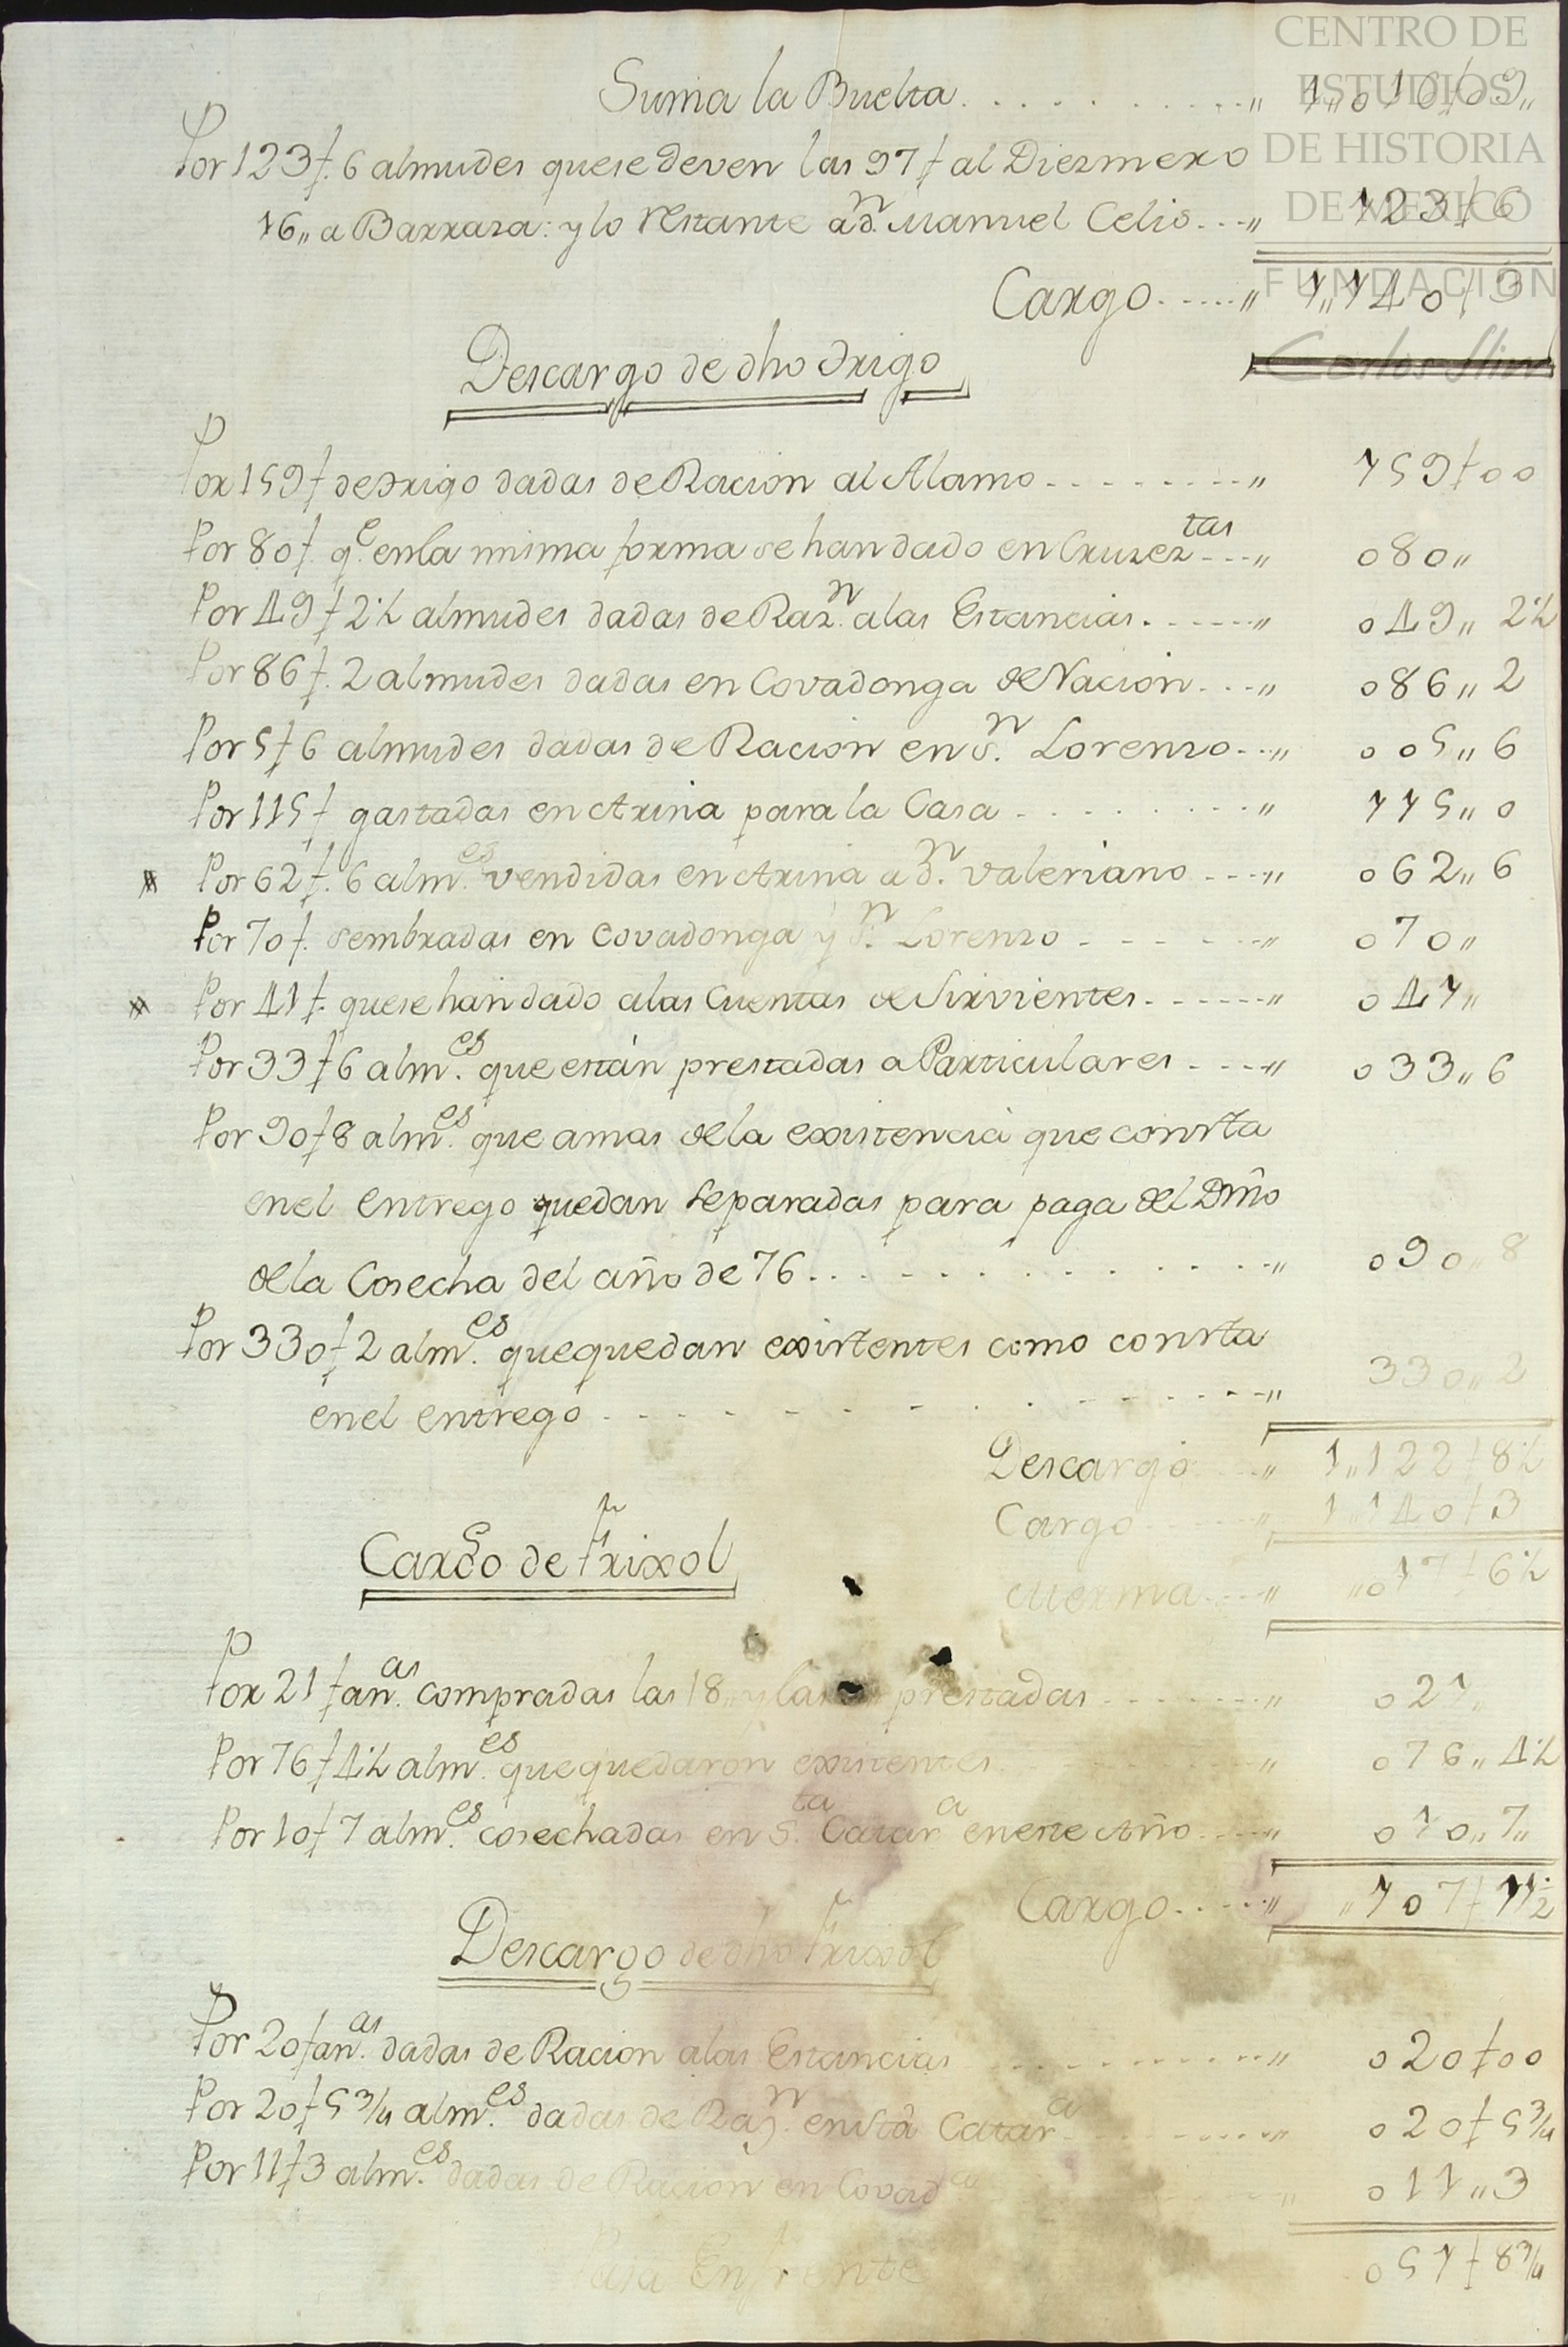 Suma la Buelta . . . . . . . . . . . „ 1„016f09„
Por 123f. 6 almudes que se deven las 97f al Diezmero
16„ a Barraza: y lo restante a dn. Manuel Celis . . . „ 123f6
Cargo . . . . . „ 1„140f3
Descargo de dho Trigo
Por 159f de Trigo dadas de Racion al Alamo . . . . . . . . „ 159f00
Por 80f. qe. en la misma forma se han dado en Cruzeztas . . . „ 080„
Por 49f 2½ almudes dadas de Razn. a las Estancias . . . . . . „ 049„ 2½
Por 86f. 2 almudes dadas en Covadonga de Nacion . . . „ 086„ 2
Por 5f 6 almudes dadas de Racion en Sn. Lorenzo . . . „ 005„ 6
Por 115f gastadas en Arina para la Casa . . . . . . . . „ 115„ 0
Por 62f. 6 almes. vendidas en Arina a dn. Valeriano . . . . „ 062„ 6
Por 70f. sembradas en Covadonga y Sn. Lorenzo . . . . . . „ 070„
Por 41f. que se han dado a las Cuentas de Sirvientes . . . . . . „ 041„
Por 33f 6 almes. que están prestadas a Particulares . . . . „ 033„ 6
Por 90f 8 almes. que a mas de la existencia que consta
en el entrego quedan separadas para paga del Dmõ
de la Cosecha del año de 76 . . . . . . . . . . . . „ 090„ 8
Por 330f 2 almes. que quedan existentes como consta
en el entrego . . . . . . . . . . . . „ 330„ 2
Descargo . . . „ 1„122f8½
Cargo . . . . „ 1„140f3
Merma . . . „ „017f6½
Cargo de Frixol
Por 21 fanas. compradas las 18„ y las prestadas . . . . . . . . „ 021„
Por 76f 4½ almes. que quedaron existentes . . . . . . . . „ 076„ 4½
Por 10f 7 almes. cosechadas en Sta. Catara en este Año . . . . „ 010„ 7„
Cargo . . . . . „ „107f 11½
Descargo de dho Frixol
Por 20 fanas. dadas de Racion a las Estancias . . . . . . . . „ 020f00
Por 20f 5¾ almes. dadas de Razn. en Sta Catara . . . . . . . „ 020f5¾
Por 11f3 almes. dadas de Racion en Covada . . . . „ 011„3
Pasa Enfrente 051f8¾
CENTRO DE
ESTUDIOS
DE HISTORIA
DE MÉXICO
FUNDACIÓN
Carlos Slim